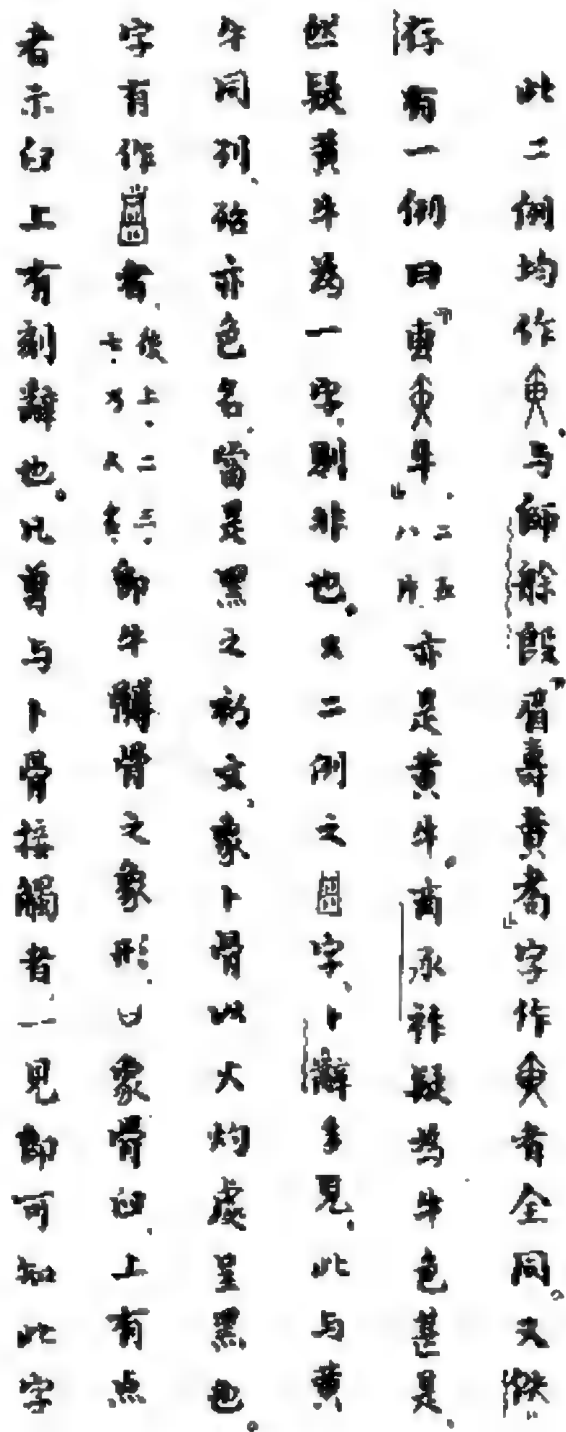 此二例均作与師艅𣪘「眉壽黄耇」字作者全同。又佚
存有一例曰「叀黄牛」二五八片亦是黄牛。商承祚疑為牛色甚是,
然疑黄牛為一字,則非也。又二例之字,卜辭多見,此与黄
牛同列,殆亦色名。當是黑之初文,象卜骨以火灼處呈黑也。
字有作者,後上.二三.即牛髆骨之象形,凵象骨臼,上有点
者示臼上有刻辭也。凡曾与卜骨接觸者一見即可知此字